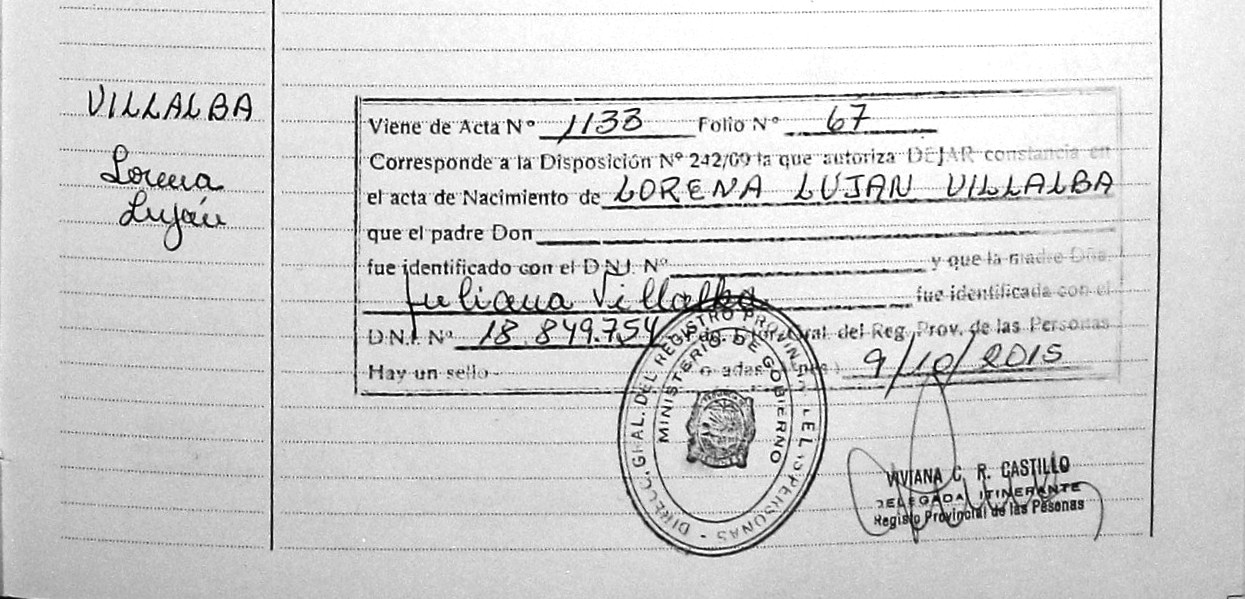 VILLALBA
Lorena
Luján
Viene de Acta Nº 1133 Folio Nº 67
Corresponde a la Disposición Nº 242/09 la que autoriza DEJAR constancia en
el acta de Nacimiento de LORENA LUJAN VILLALBA
que el padre Don
fue identificado con el D.N.I. Nº y que la madre Dña.
Juliana Villalba fue identificada con el
D.N.I. Nº 18.849.754 Gral. del Reg. Prov. de las Personas
Hay un sello - 9/10/2015
DIRECC. GRAL. DEL REGISTRO PROVINCIAL DE LAS PERSONAS -
MINISTERIO DE GOBIERNO
VIVIANA C. R. CASTILLO
DELEGADA ITINERANTE
Registo Provincial de las Pesonas